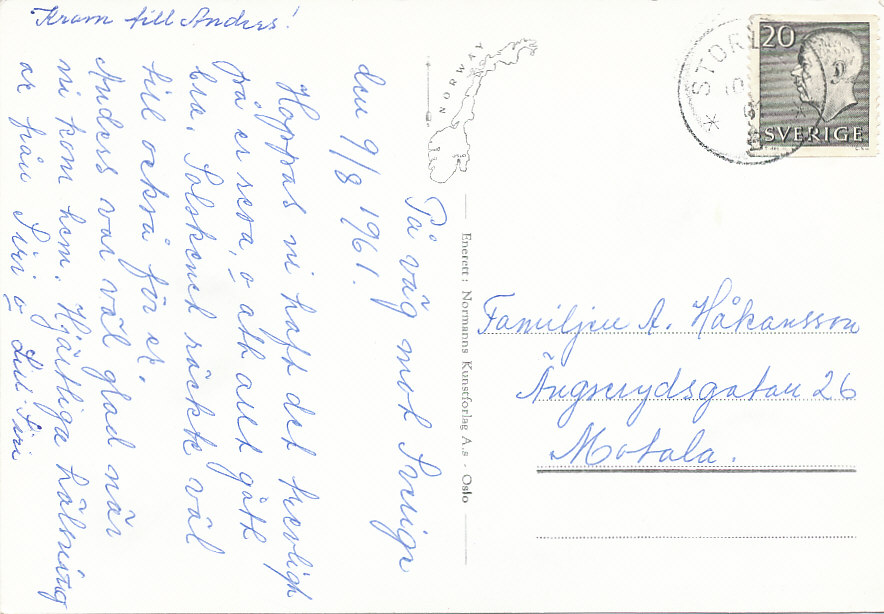 Kram till Anders!
På väg mot Sverige
den 9/8 1961.
Hoppas ni haft det trevligt
på er resa, o att allt gått
bra. Solskenet räckte väl
till också för er.
Anders var väl glad när
ni kom hem. Hjärtliga hälsning
ar från Siri o Lill Siri
NORWAY
Enerett: Normanns Kunstforlag A.s - Oslo
STORL
20
SVERIGE
Familjen A. Håkansson
Ängserydsgatan 26
Motala.